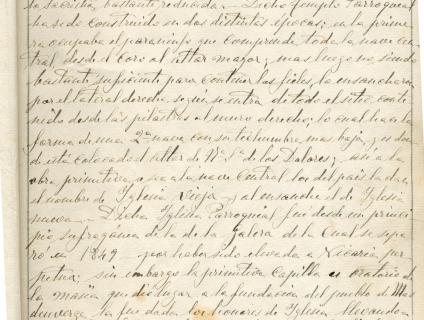 la sacristía, bastante reducida.- Dicho Templo Parroquial
ha sido construido en dos distintas épocas; en la prime-
ra ocupaba el paramento que comprende toda la nave cen-
tral, desde el coro al Altar mayor; mas luego no siendo
bastante suficiente para contener los fieles, la ensancharon
por el lateral derecho según se entra de todo el sitio conte-
nido desde las pilastras al muro derecho; lo cual hace la
forma de una 2ª nave con su techumbre mas baja, y es don-
de está colocado el Altar de Nª Sª de los Dolores; asi a la
obra primitiva o sea la nave central los del pais la dan
el nombre de Iglesia vieja y al ensanche el de Iglesia
nueva.- Dicha Iglesia Parroquial fue desde un princi-
pio sufragánea de la de Jalera de la cual se sepa-
ró en 1849 por haber sido elevada a Vicaria per-
petua; sin embargo la primitiva Capilla u oratorio de
la masía que dio lugar a la fundación del pueblo de
la fundada los honores de Iglesia llevando a